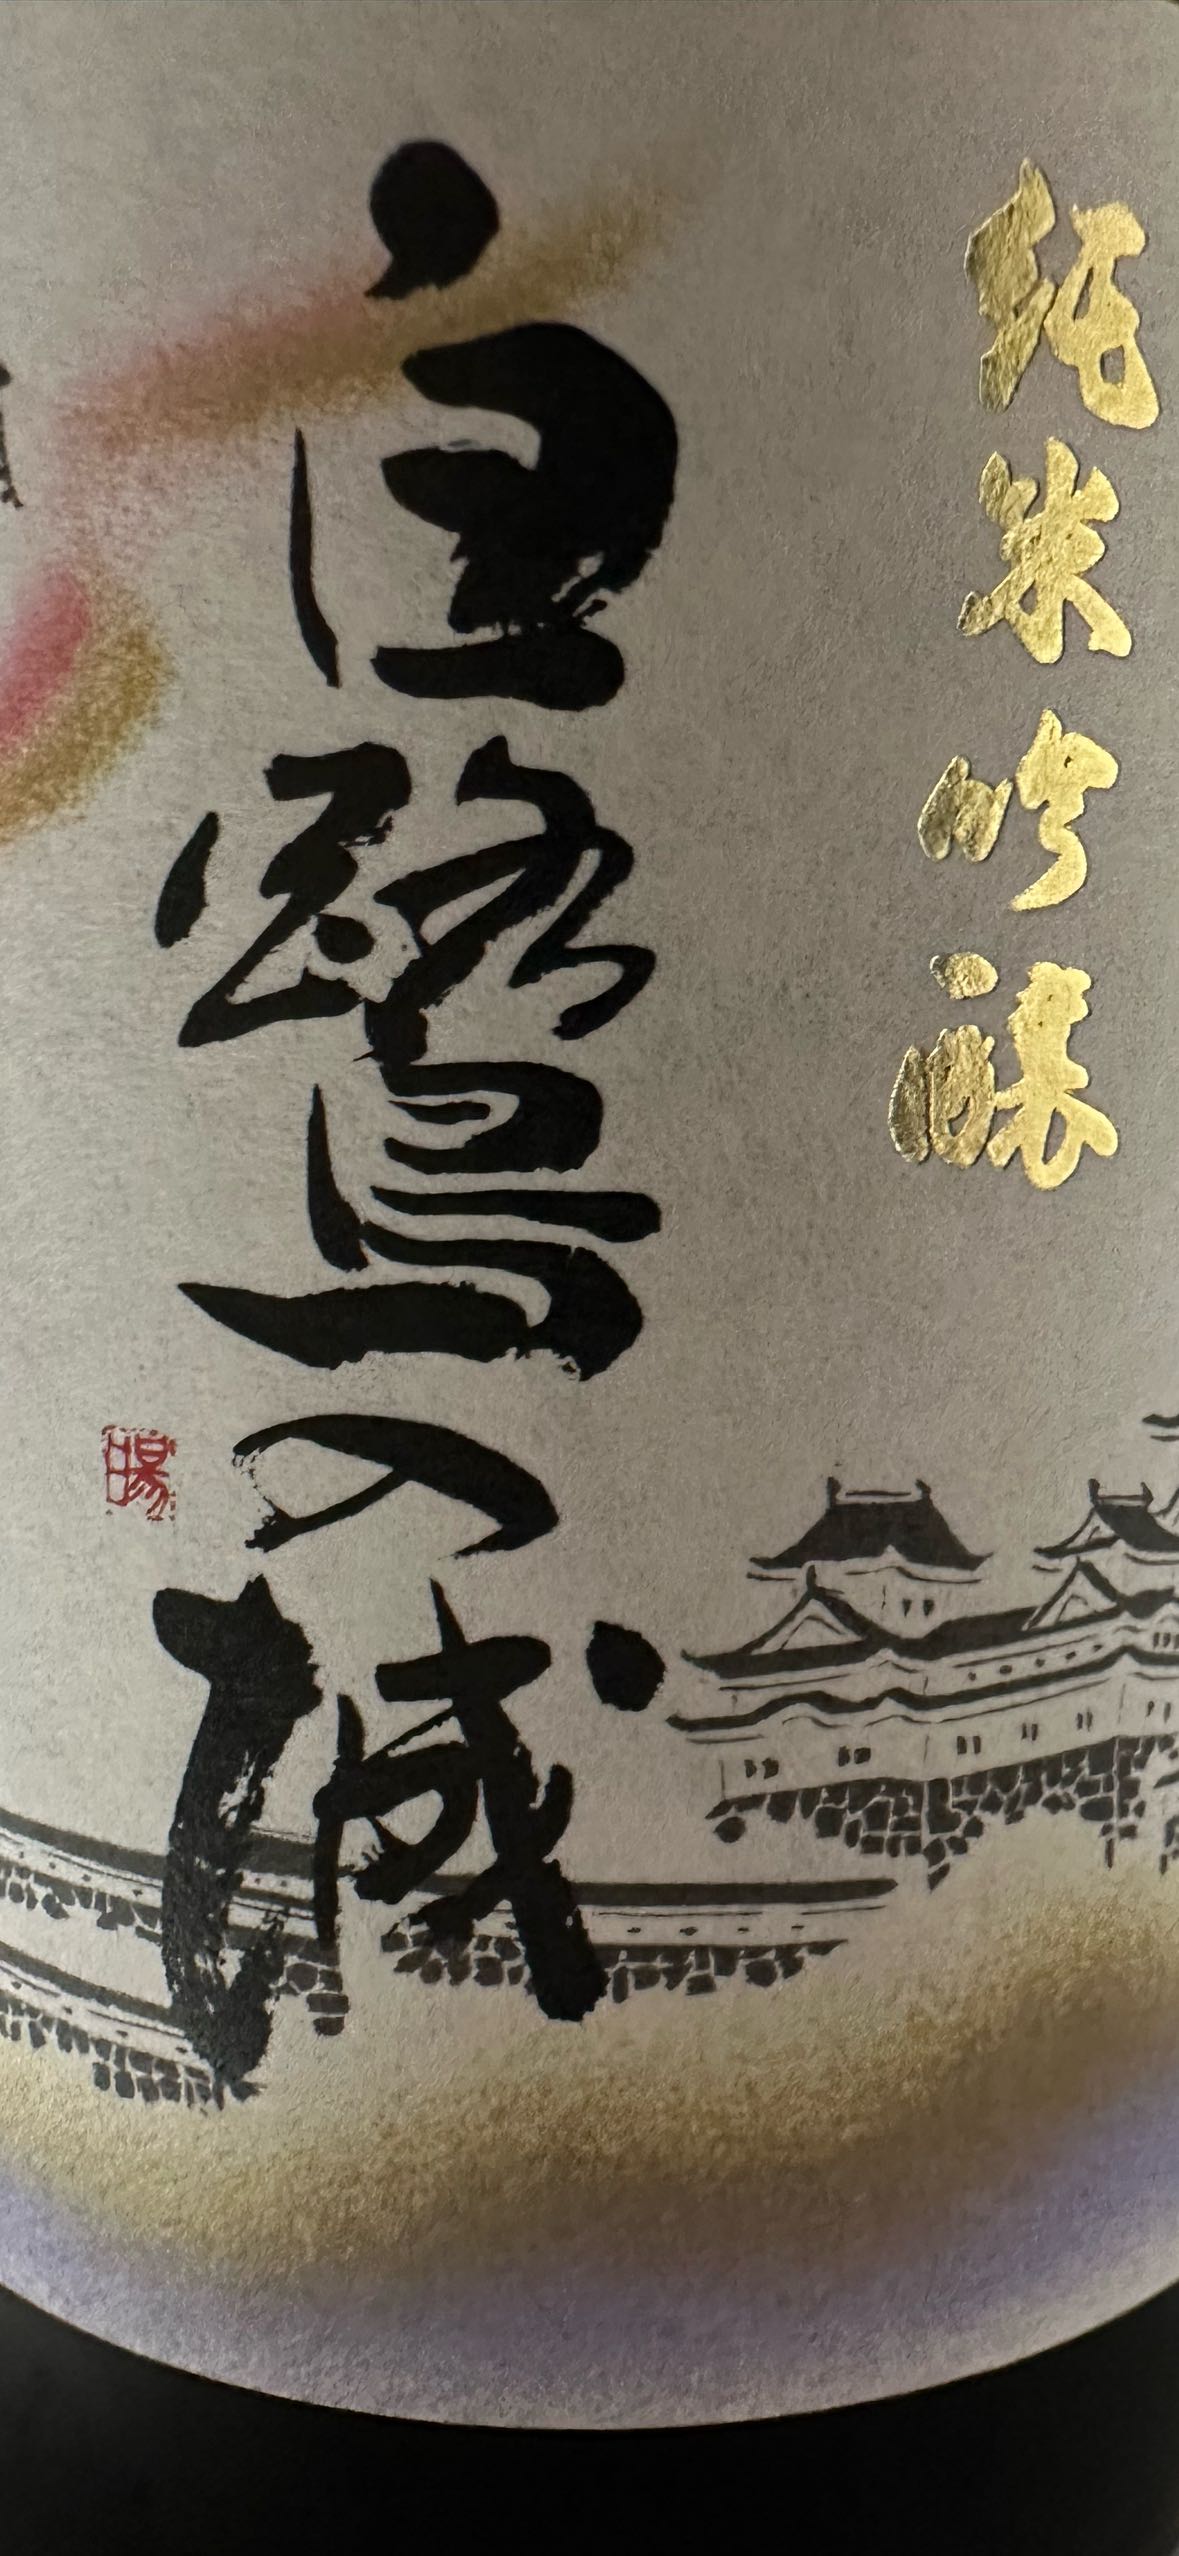 純米吟醸
白鷺の城